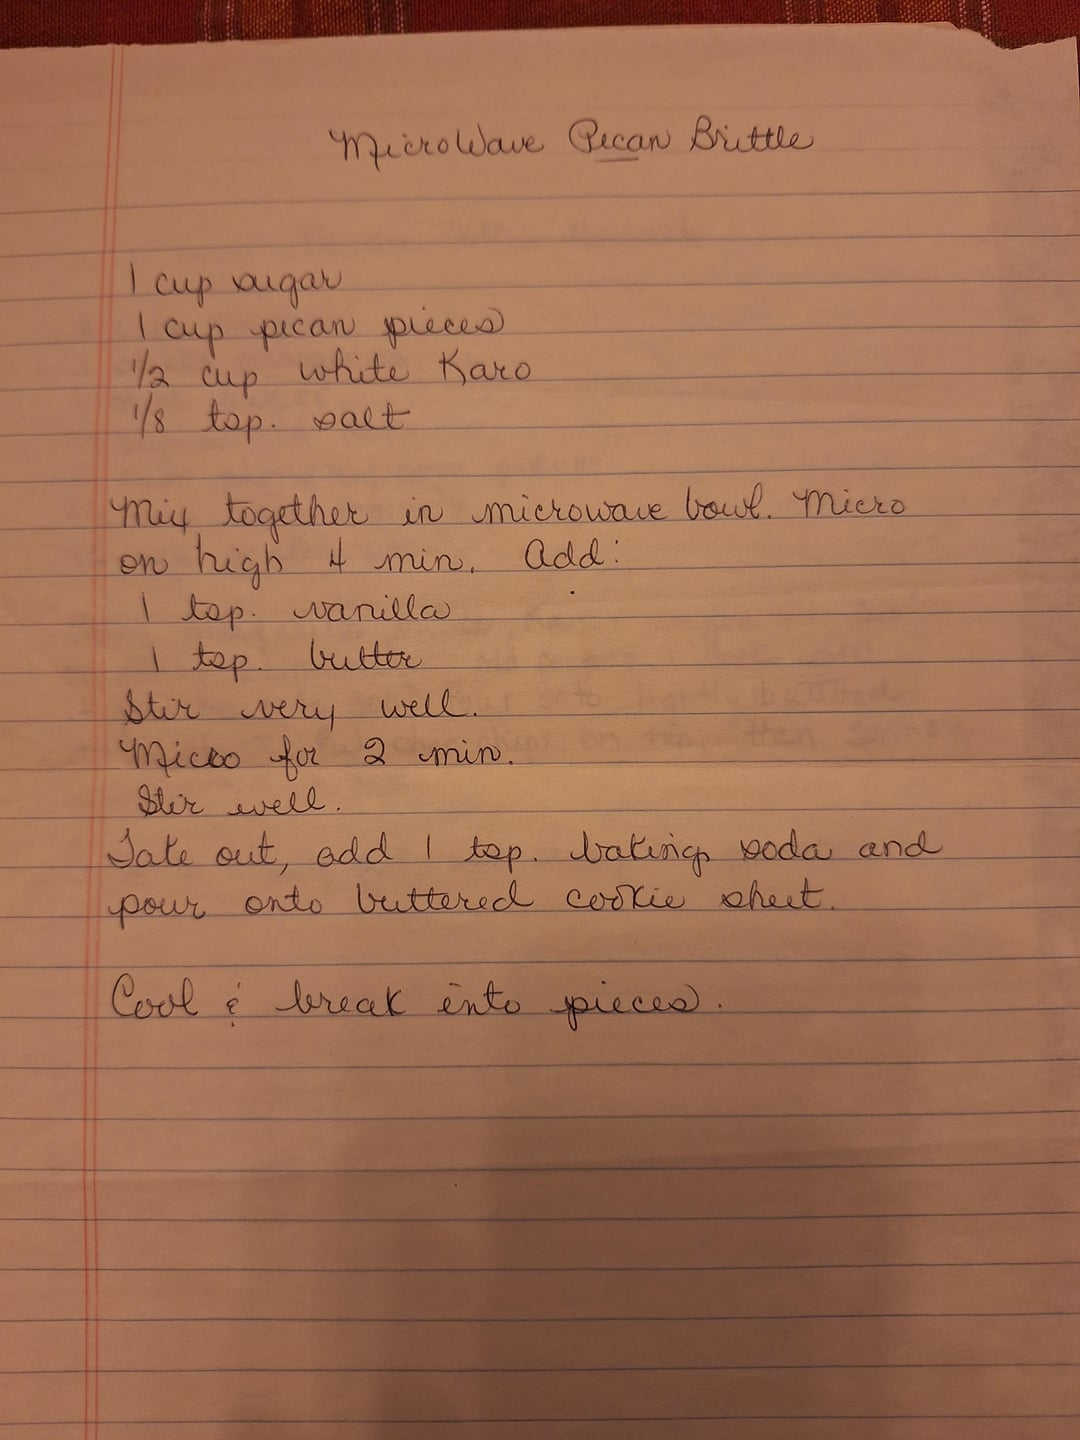 MicroWave Pecan Brittle
1 cup sugar
1 cup pecan pieces
1/2 cup white Karo
1/8 tsp. salt
Mix together in microwave bowl. Micro
on high 4 min. Add:
1 tsp. vanilla
1 tsp. butter
Stir very well.
Micro for 2 min.
Stir well.
Take out, add 1 tsp. baking soda and
pour onto buttered cookie sheet.
Cool & break into pieces.